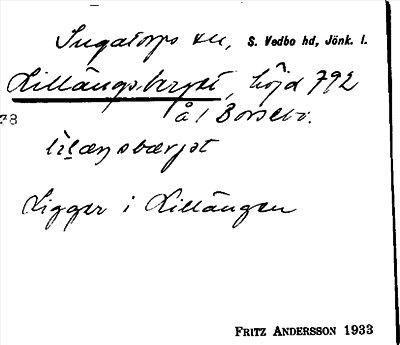 Ingatorps sn, S. Vedbo hd, Jönk. l.
Lillängsberget, höjd 792
78 å l Borsebo.
lìlæŋsbærjət
Ligger i Lillängen
FRITZ ANDERSSON 1933